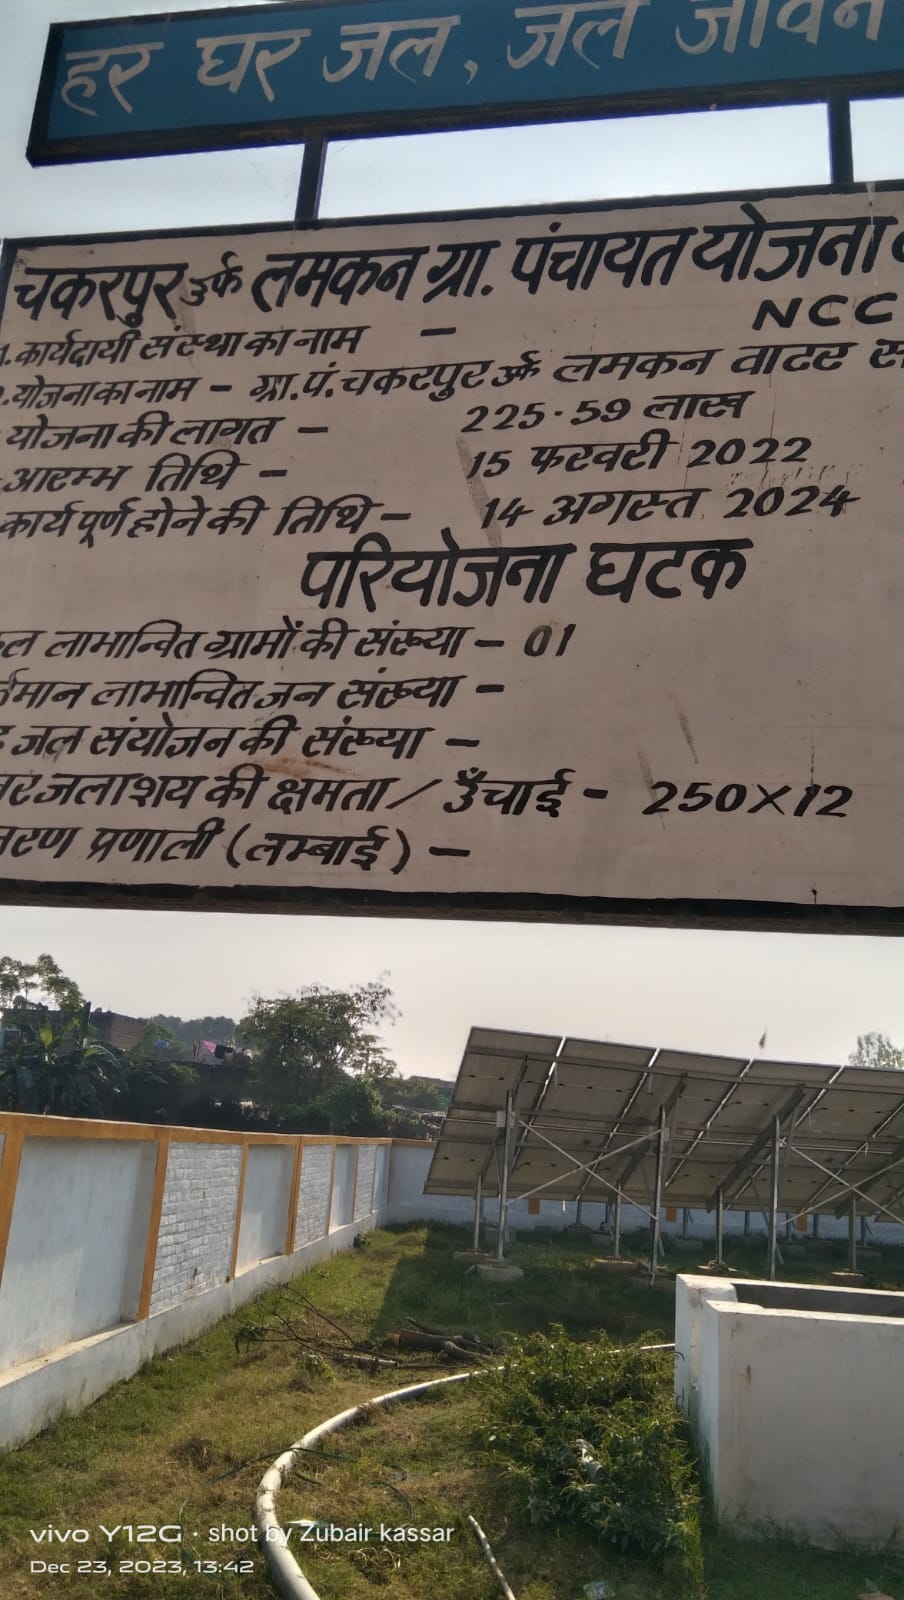 हर घर जल, जल जीवन
चकरपुर उर्फ लमकन ग्रा. पंचायत योजना
NCC
1. कार्यदायी संस्था का नाम –
योजना का नाम – ग्रा.पं. चकरपुर उर्फ लमकन वाटर
योजना की लागत – 225.59 लाख
आरम्भ तिथि – 15 फरवरी 2022
कार्य पूर्ण होने की तिथि – 14 अगस्त 2024
परियोजना घटक
लाभान्वित ग्रामों की संख्या – 01
लाभान्वित जन संख्या –
जल संयोजन की संख्या –
जलाशय की क्षमता / उँचाई – 250X12
प्रणाली (लम्बाई) –
vivo Y12G · shot by Zubair kassar
Dec 23, 2023, 13:42